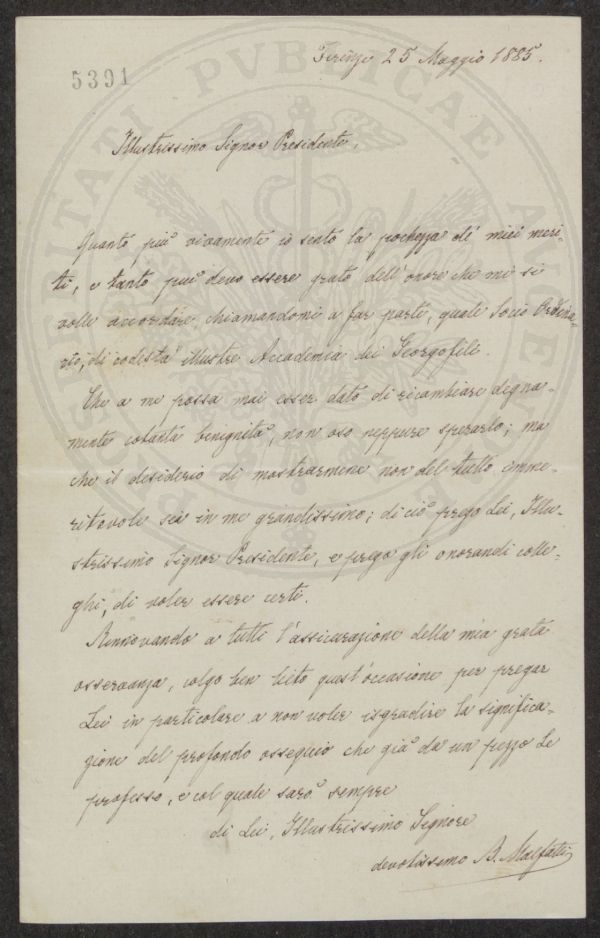 Firenze 25 Maggio 1885.
5391
PROSPERITATI PVBLICAE AVGENDAE
Illustrissimo Signor Presidente,
Quanto più vivamente io sento la pochezza de' miei meri-
ti, e tanto più devo essere grato dell'onore che mi si
volle accordare, chiamandomi a far parte, quale Socio Ordina-
rio, di codesta illustre Accademia dei Georgofili.
Che a me possa mai esser dato di ricambiare degna-
mente cotanta benignità, non oso neppure sperarlo; ma
che il desiderio di mostrarmene non del tutto imme-
ritevole sia in me grandissimo; di ciò prego Lei, Illu-
strissimo Signor Presidente, e prego gli onorandi colle-
ghi, di voler essere certi.
Rinnovando a tutti l'assicurazione della mia grata
osservanza, colgo ben lieto quest'occasione per pregar
Lei in particolare a non voler isgradire la significa-
zione del profondo ossequio che già da un pezzo Le
professo, e col quale sarò sempre
di Lei, Illustrissimo Signore
devotissimo B. Malfatti